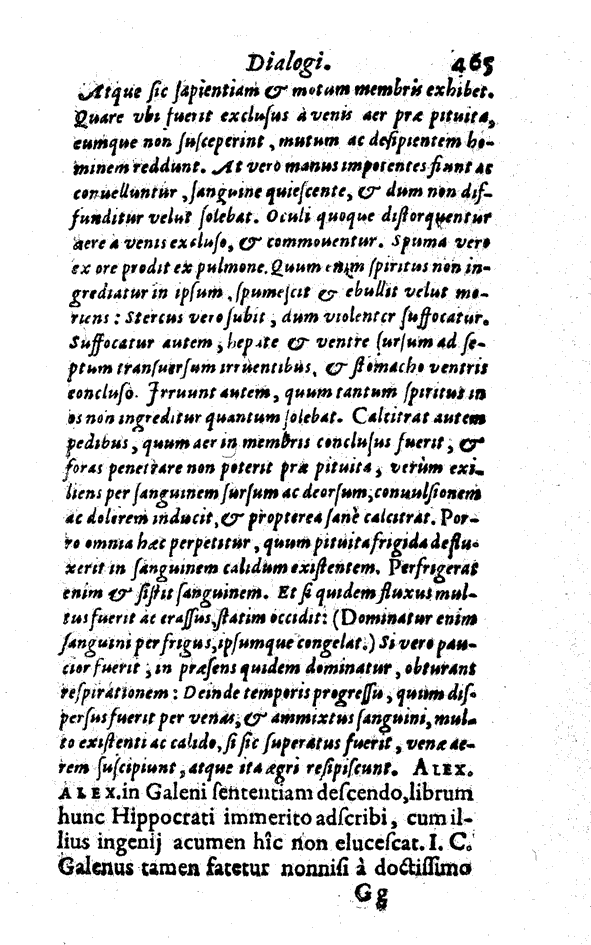 Dialogi. 465
Atque ſic ſapientiam & motum membris exhibet.
Quare vbi fuerit excluſus à venis aer præ pituita,
eumque non ſuſceperint, mutum ac deſipientem ho-
minem reddunt. At vero manus impotentes fiunt ac
conuelluntur, ſanguine quieſcente, & dum non dif-
funditur velut ſolebat. Oculi quoque diſtorquentur
aere à venis excluſo, & commouentur. Spuma vero
ex ore prodit ex pulmone. Quum enim ſpiritus non in-
grediatur in ipſum, ſpumeſcit & ebullit velut mo-
riens: Stercus vero ſubit, dum violenter ſuffocatur.
Suffocatur autem, hepate & ventre ſurſum ad ſe-
ptum tranſuerſum irruentibus, & ſtomacho ventris
concluſo. Irruunt autem, quum tantum ſpiritus in
os non ingreditur quantum ſolebat. Calcitrat autem
pedibus, quum aer in membris concluſus fuerit, &
foras penetrare non poterit præ pituita, verùm exi-
liens per ſanguinem ſurſum ac deorſum, conuulſionem
ac dolorem inducit, & propterea ſanè calcitrat. Por-
ro omnia hæc perpetitur, quum pituita frigida deflu-
xerit in ſanguinem calidum exiſtentem. Perfrigerat
enim & ſiſtit ſanguinem. Et ſi quidem fluxus mul-
tus fuerit ac craſſus, ſtatim occidit: (Dominatur enim
ſanguini per frigus, ipſumque congelat.) Si vero pau-
cior fuerit, in præſens quidem dominatur, obturant
reſpirationem: Deinde temporis progreſſu, quum diſ-
perſus fuerit per venas, & ammixtus ſanguini, mul-
to exiſtenti ac calido, ſi ſic ſuperatus fuerit, venæ ae-
rem ſuſcipiunt, atque ita ægri reſipiſcunt. ALEX.
ALEX. in Galeni ſententiam deſcendo, librum
hunc Hippocrati immerito adſcribi, cum il-
lius ingenij acumen hîc non eluceſcat. I. C.
Galenus tamen fatetur nonniſi à doctiſſimo
Gg